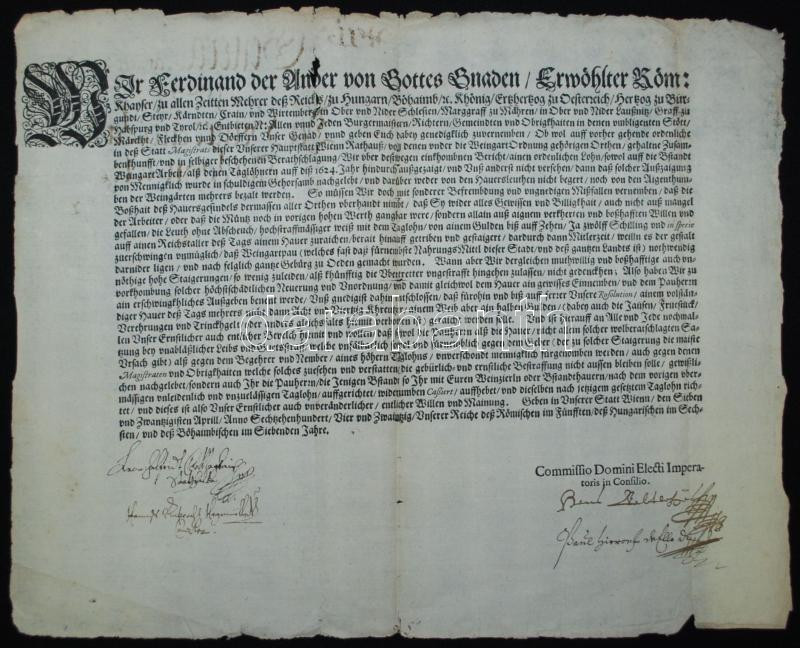 WIr Ferdinand der Ander von Gottes Gnaden / Erwöhlter Röm:
Khayser / zu allen Zeitten Mehrer deß Reichs / zu Hungarn / Böhaimb / ꝛc. Khönig / Ertzhertzog zu Oesterreich / Hertzog zu Bur-
gundi / Steyr / Kärndten / Crain / und Wirtemberg / in Ober und Nider Schlesien / Marggraff zu Mähren / in Ober und Nider Laußnitz / Graff zu
Habspurg und Tyrol / ꝛc. Embieten N: Allen vnnd Jeden Burgermaistern / Richtern / Gemeinden und Obrigkhaiten in denen umbligenten Stött /
Märckht / Fleckhen vnnd Dörffern Unser Genad / vnnd geben Euch dabey genediglich zuvernemben / Ob wol auff vorher gehende ordenliche
in deß Statt Magistrats dieser Unserer Hauptstatt Wienn Rathauß / von denen under die Weingart Ordnung gehörigen Orthen / gehaltne Zusam-
benkhunfft / vnd in selbiger beschehenen Berathschlagung / Wir über deßwegen einkhombnen Bericht / ainen ordenlichen Lohn / sowol auff die Bstandt
Weingart Arbeit / alß denen Taglöhnern auff diß 1624. Jahr hindurch außgezaigt / und Unß anderst nicht versehen / dann daß solcher Außzaigung
von Menniglich wurde in schuldigem Gehorsamb nachgelebt / und darüber weder von den Hauersleuthen nicht begert / noch von den Aigenthum-
ben der Weingärten mehrers bezalt werden. So müssen Wir doch mit sonderer Befrembdung und ungnedigen Mißfallen vernemben / daß die
Boßhait deß Hauersgesindels dermassen aller Orthen vberhandt nimbt / daß Sy wider alles Gewissen und Billigkhait / auch nicht auß mangel
der Arbeiter / oder daß die Müntz noch in vorigen hohen Werth gangbar were / sondern allain auß aignem verkherten und boßhafften Willen und
gefallen / die Leuth ohne Abscheuch / hochstraffmässiger weiß mit dem Taglohn / von ainem Gulden biß auff Zehen / Ja zwölff Schilling und in specie
auff ainen Reichstaller deß Tags einem Hauer zuraichen / berait hinauff getriben und gestaigert / dardurch dann Mitlerzeit / weilln es der gestalt
zuerschwingen vnmüglich / daß Weingartpau (welches fast daß fürnembste Nahrungs Mitel dieser Stadt / und deß gantzen Landts ist) nothwendig
darnider ligen / und nach felglich gantze Gebürg zu Oeden gemacht wurden. Wann aber Wir dergleichen muthwillig und boßhafftige auch un-
nöthige hohe Staigerungen / so wenig zuleiden / alß khünfftig die Vbertretter ungestrafft hingehen zulassen / nicht gedenckhen; Also haben Wir zu
vorkhombung solcher höchstschädlichen Neuerung und Unordnung / und damit gleichwol dem Hauer ain gewisses Einnemben / und dem Pauherrn
ain erschwingkhliches Außgeben benent werde / Unß gnedigist dahin entschlossen / daß fürohin und biß auff ferrer Unsere Resolution / einem volstän-
diger Hauer deß Tags mehrers nicht dann Acht und Viertzig Khreutzer / ainem Weib aber ain halben Gulden / (dabey auch die Jausen / Fruestuck /
Verehrungen und Trinckhgelt / oder anders gleichfals hiemit verbotten /) geraicht werden solle. Und ist hierauff an Alle und Jede nochmal-
len Unser Ernstlicher auch entlicher Bevelch / hiemit und wollen / daß sowol die Pauherrn alß die Hauer / nicht allain solcher wolberaischlagten Sa-
tzung bey unabläßlicher Leibs und Guetsstraff / welche unfählbarlich so wol und fürnemblich auff dem Geber (der zu solcher Staigerung die maiste
Ursach gibt) alß gegen dem Begehrer und Nember / aines höhern Taglohns / unverschondt menniglich fürgenomben werden / auch gegen denen
Magistraten und Obrigkhaiten welche solches zuesehen und verstatten / die gebürlich- und ernstliche Bestraffung nicht aussen bleiben solle / gewißli-
chen nachgelebet / sondern auch Ihr die Pauherrn / die jenigen Bstandt so Ihr mit Euren Weinzierln oder Bstandthauern / nach dem vorigen über-
mässigen unleidenlich und unzuelässigen Taglohn / auffgerichtet / widerumben Cassiert / auffhebet / und dieselben nach jetzigem gesetztem Taglohn rich-
tet / und dieses ist also Unser Ernstlicher auch unveränderlicher / entlicher Willen und Mainung. Geben in Unserer Statt Wienn / den Sieben
und Zwaintzigisten Aprill / Anno Sechtzehenhundert / Vier und Zwaintzig / Unserer Reiche deß Römischen im Fünfften / deß Hungarischen im Sech-
sten / und deß Böhaimbischen im Siebenden Jahre.
Commissio Domini Electi Impera-
toris in Consilio.
darabanth